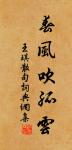 春風吹孤雲
王琪散句詞典網集